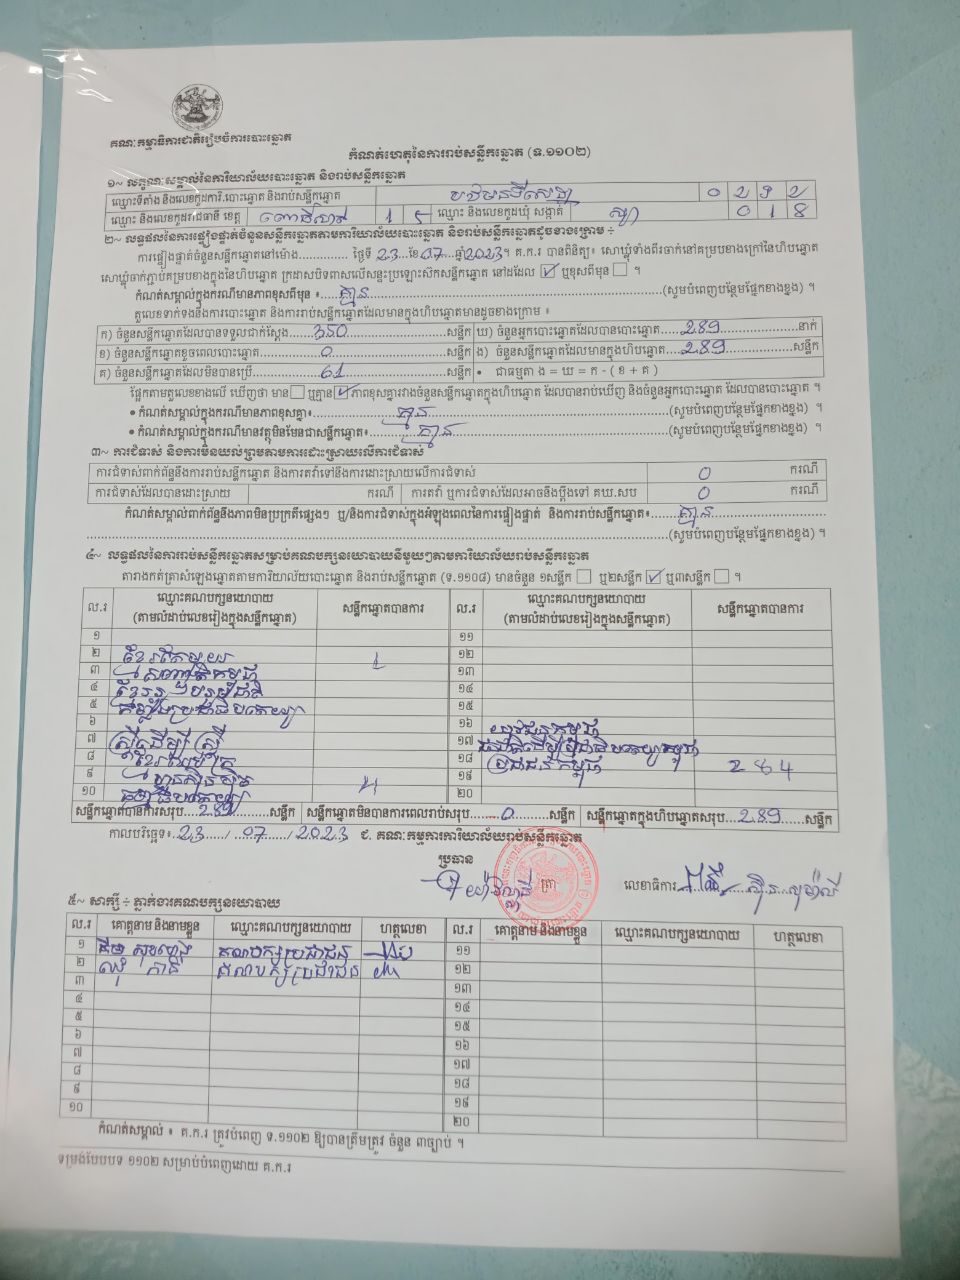 គណៈកម្មាធិការជាតិរៀបចំការបោះឆ្នោត
កំណត់ហេតុនៃការរាប់សន្លឹកឆ្នោត (ទ.១១០២)
១~ លក្ខណៈសម្គាល់នៃការិយាល័យបោះឆ្នោត និងរាប់សន្លឹកឆ្នោត
ឈ្មោះទីតាំង និងលេខកូដការិ.បោះឆ្នោត និងរាប់សន្លឹកឆ្នោត 0 2 9 2
ឈ្មោះ និងលេខកូដរាជធានី ខេត្ត ពោធិ៍សាត់ 1 5 ឈ្មោះ និងលេខកូដឃុំ សង្កាត់ 0 1 8
២~ លទ្ធផលនៃការផ្ទៀងផ្ទាត់ចំនួនសន្លឹកឆ្នោតតាមការិយាល័យបោះឆ្នោត និងរាប់សន្លឹកឆ្នោតដូចខាងក្រោម ÷
ការផ្ទៀងផ្ទាត់ចំនួនសន្លឹកឆ្នោតនៅម៉ោង.............. ថ្ងៃទី 23 ខែ 07 ឆ្នាំ 2023។ គ.ក.រ បានពិនិត្យ៖ សោឃ្លុំទាំងពីរចាក់នៅគម្របខាងក្រៅនៃហិបឆ្នោត
សោឃ្លុំចាក់ភ្ជាប់គម្របខាងក្នុងនៃហិបឆ្នោត ក្រដាសបិទពាសលើសន្ទះប្រឡោះសិកសន្លឹកឆ្នោត នៅដដែល ☑ ឬខុសពីមុន ☐ ។
កំណត់សម្គាល់ក្នុងករណីមានភាពខុសពីមុន ៖ គ្មាន (សូមបំពេញបន្ថែមផ្នែកខាងខ្នង) ។
តួលេខទាក់ទងនឹងការបោះឆ្នោត និងការរាប់សន្លឹកឆ្នោតដែលមានក្នុងហិបឆ្នោតមានដូចខាងក្រោម ៖
ក) ចំនួនសន្លឹកឆ្នោតដែលបានទទួលជាក់ស្តែង 350 សន្លឹក ឃ) ចំនួនអ្នកបោះឆ្នោតដែលបានបោះឆ្នោត 289 នាក់
ខ) ចំនួនសន្លឹកឆ្នោតខូចពេលបោះឆ្នោត 0 សន្លឹក ង) ចំនួនសន្លឹកឆ្នោតដែលមានក្នុងហិបឆ្នោត 289 សន្លឹក
គ) ចំនួនសន្លឹកឆ្នោតដែលមិនបានប្រើ 61 សន្លឹក • ជាធម្មតា ង = ឃ = ក - ( ខ + គ )
ផ្អែកតាមតួលេខខាងលើ ឃើញថា មាន ☐ ឬគ្មាន ☑ ភាពខុសគ្នារវាងចំនួនសន្លឹកឆ្នោតក្នុងហិបឆ្នោត ដែលបានរាប់ឃើញ និងចំនួនអ្នកបោះឆ្នោត ដែលបានបោះឆ្នោត ។
• កំណត់សម្គាល់ក្នុងករណីមានភាពខុសគ្នា៖ គ្មាន (សូមបំពេញបន្ថែមផ្នែកខាងខ្នង) ។
• កំណត់សម្គាល់ក្នុងករណីមានវត្ថុមិនមែនជាសន្លឹកឆ្នោត៖ គ្មាន (សូមបំពេញបន្ថែមផ្នែកខាងខ្នង) ។
៣~ ការជំទាស់ និងការមិនយល់ព្រមតាមការដោះស្រាយលើការជំទាស់
ការជំទាស់ពាក់ព័ន្ធនឹងការរាប់សន្លឹកឆ្នោត និងការតវ៉ាទៅនឹងការដោះស្រាយលើការជំទាស់ 0 ករណី
ការជំទាស់ដែលបានដោះស្រាយ ករណី ការតវ៉ា ឬការជំទាស់ដែលអាចនឹងប្តឹងទៅ គឃ.សប 0 ករណី
កំណត់សម្គាល់ពាក់ព័ន្ធនឹងភាពមិនប្រក្រតីផ្សេងៗ ឬ/និងការជំទាស់ក្នុងអំឡុងពេលនៃការផ្ទៀងផ្ទាត់ និងការរាប់សន្លឹកឆ្នោត៖ គ្មាន
(សូមបំពេញបន្ថែមផ្នែកខាងខ្នង) ។
៤~ លទ្ធផលនៃការរាប់សន្លឹកឆ្នោតសម្រាប់គណបក្សនយោបាយនីមួយៗតាមការិយាល័យរាប់សន្លឹកឆ្នោត
តារាងកត់ត្រាសំឡេងឆ្នោតតាមការិយាល័យបោះឆ្នោត និងរាប់សន្លឹកឆ្នោត (ទ.១១០៨) មានចំនួន ១សន្លឹក ☐ ឬ២សន្លឹក ☑ ឬ៣សន្លឹក ☐ ។
ល.រ ឈ្មោះគណបក្សនយោបាយ (តាមលំដាប់លេខរៀងក្នុងសន្លឹកឆ្នោត) សន្លឹកឆ្នោតបានការ ល.រ ឈ្មោះគណបក្សនយោបាយ (តាមលំដាប់លេខរៀងក្នុងសន្លឹកឆ្នោត) សន្លឹកឆ្នោតបានការ
១ ១១
២ ខ្មែរតែមួយ 1 ១២
៣ ១៣
៤ ១៤
៥ ១៥
៦ ១៦
៧ ស្រ្តីដើម្បីស្រ្តី ១៧
៨ ១៨ ប្រជាជនកម្ពុជា 284
៩ ១៩
១០ 4 ២០
សន្លឹកឆ្នោតបានការសរុប 289 សន្លឹក សន្លឹកឆ្នោតមិនបានការពេលរាប់សរុប 0 សន្លឹក សន្លឹកឆ្នោតក្នុងហិបឆ្នោតសរុប 289 សន្លឹក
កាលបរិច្ឆេទ៖ 23 / 07 / 2023 ជ. គណៈកម្មការការិយាល័យរាប់សន្លឹកឆ្នោត
ប្រធាន
ត្រា
លេខាធិការ
៥~ សាក្សី ÷ ភ្នាក់ងារគណបក្សនយោបាយ
ល.រ គោត្តនាម និងនាមខ្លួន ឈ្មោះគណបក្សនយោបាយ ហត្ថលេខា ល.រ គោត្តនាម និងនាមខ្លួន ឈ្មោះគណបក្សនយោបាយ ហត្ថលេខា
១ គណបក្សប្រជាជន ១១
២ គណបក្សប្រជាជន ១២
៣ ១៣
៤ ១៤
៥ ១៥
៦ ១៦
៧ ១៧
៨ ១៨
៩ ១៩
១០ ២០
កំណត់សម្គាល់ ៖ គ.ក.រ ត្រូវបំពេញ ទ.១១០២ ឱ្យបានត្រឹមត្រូវ ចំនួន ៣ច្បាប់ ។
ទម្រង់បែបបទ ១១០២ សម្រាប់បំពេញដោយ គ.ក.រ